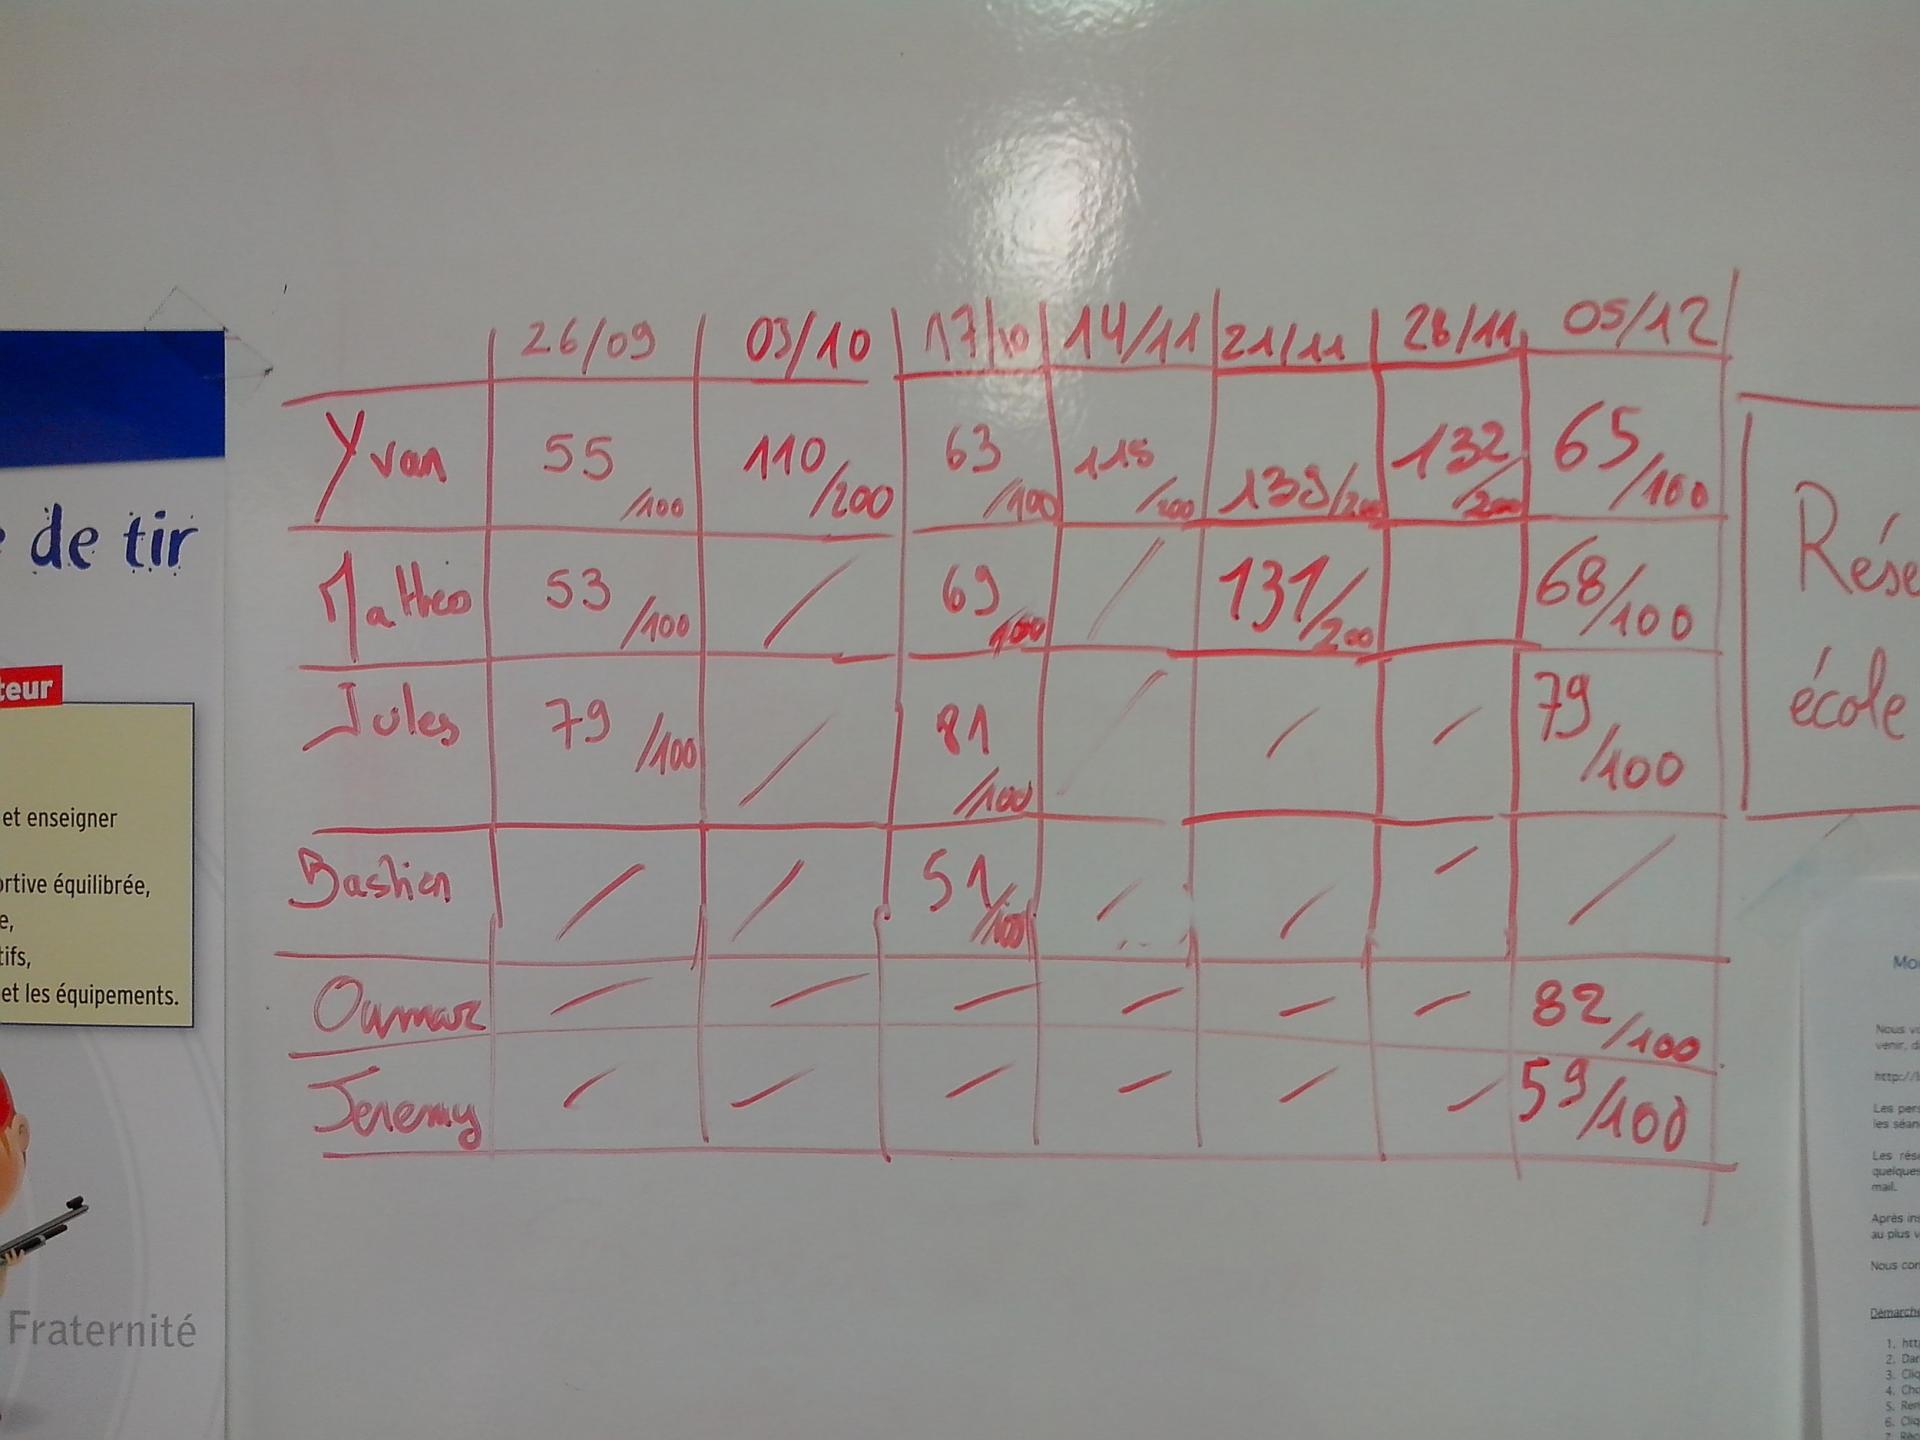 26/09 03/10 17/10 14/11 21/11 28/11 05/12
Yvan 55/100 110/200 63/100 115/200 139/200 132/200 65/100
Mathéo 53/100 / 69/100 / 131/200 68/100
Jules 79/100 / 81/100 / / / 79/100
Bastien / / 51/100 / / / /
Oumar / / / / / / 82/100
Jeremy / / / / / / 59/100
école
de tir
teur
et enseigner
ortive équilibrée,
et les équipements.
Fraternité
Nous
venir,
http://
Les
les
Les
quelques
mail.
Après
au plus
Nous
1.
2.
3.
4.
5.
6.